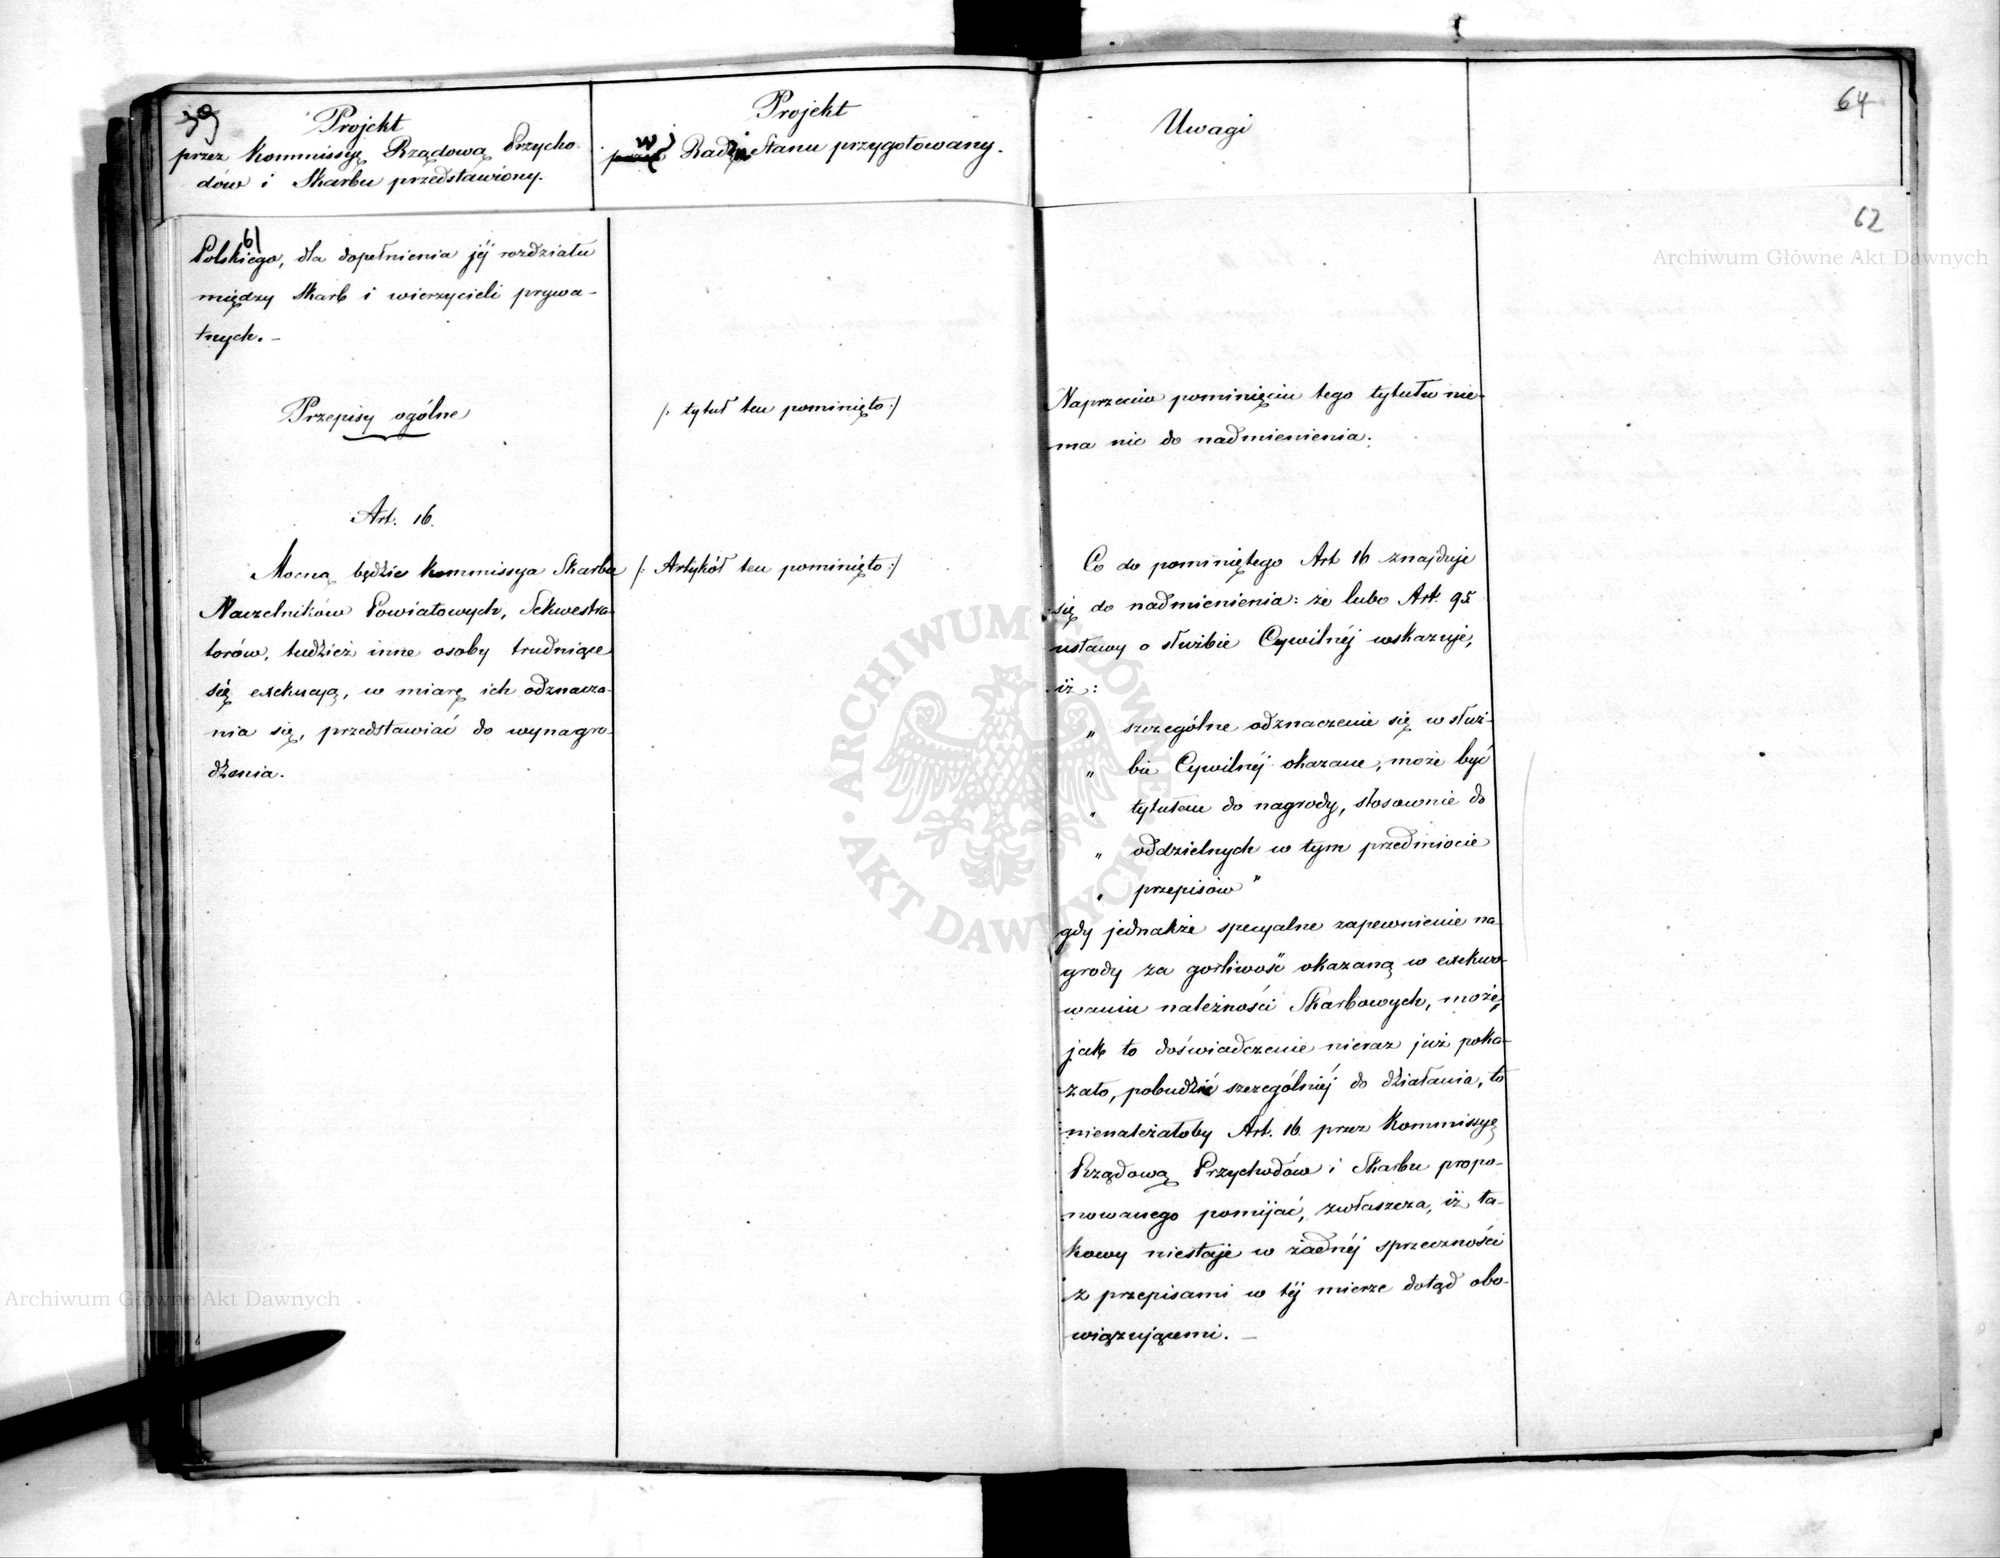 39
Projekt
przez Kommissyę Rządową Przycho-
dów i Skarbu przedstawiony.
Projekt
w Radzie Stanu przygotowany.
Uwagi
64
62
61
Polskiego, dla dopełnienia jéj rozdziału
między Skarb i wierzycieli prywa-
tnych. –
Przepisy ogólne
Art. 16.
Mocną będzie Kommissya Skarbu
Naczelników Powiatowych, Sekwestra-
torów, tudzież inne osoby trudniące
się exekucyą, w miarę ich odznacza-
nia się, przedstawiać do wynagro-
dzenia.
/: tytuł ten pominięto :/
/: Artykół ten pominięto :/
Naprzeciw pominięciu tego tytułu nie-
ma nic do nadmienienia.
Co do pominiętego Art 16 znajduje
się do nadmienienia: że lubo Art. 95
ustawy o służbie Cywilnéj wskazuje,
iż:
„ szczególne odznaczenie się w służ-
„ bie Cywilnéj okazane, może być
„ tytułem do nagrody, stosownie do
„ oddzielnych w tym przedmiocie
„ przepisów"
gdy jednakże specyalne zapewnienie na-
grody za gorliwość okazaną w exekwo-
waniu należności Skarbowych, może,
jak to doświadczenie nieraz już poka-
zało, pobudzić szczególniéj do działania, to
nienależałoby Art. 16 przez Kommissyę
Rządową Przychodów i Skarbu propo-
nowanego pomijać, zwłaszcza, iż ta-
kowy niestaje w żadnéj sprzeczności
z przepisami w téj mierze dotąd obo-
wiązującemi. –
Archiwum Główne Akt Dawnych
Archiwum Główne Akt Dawnych
ARCHIWUM GŁÓWNE AKT DAWNYCH